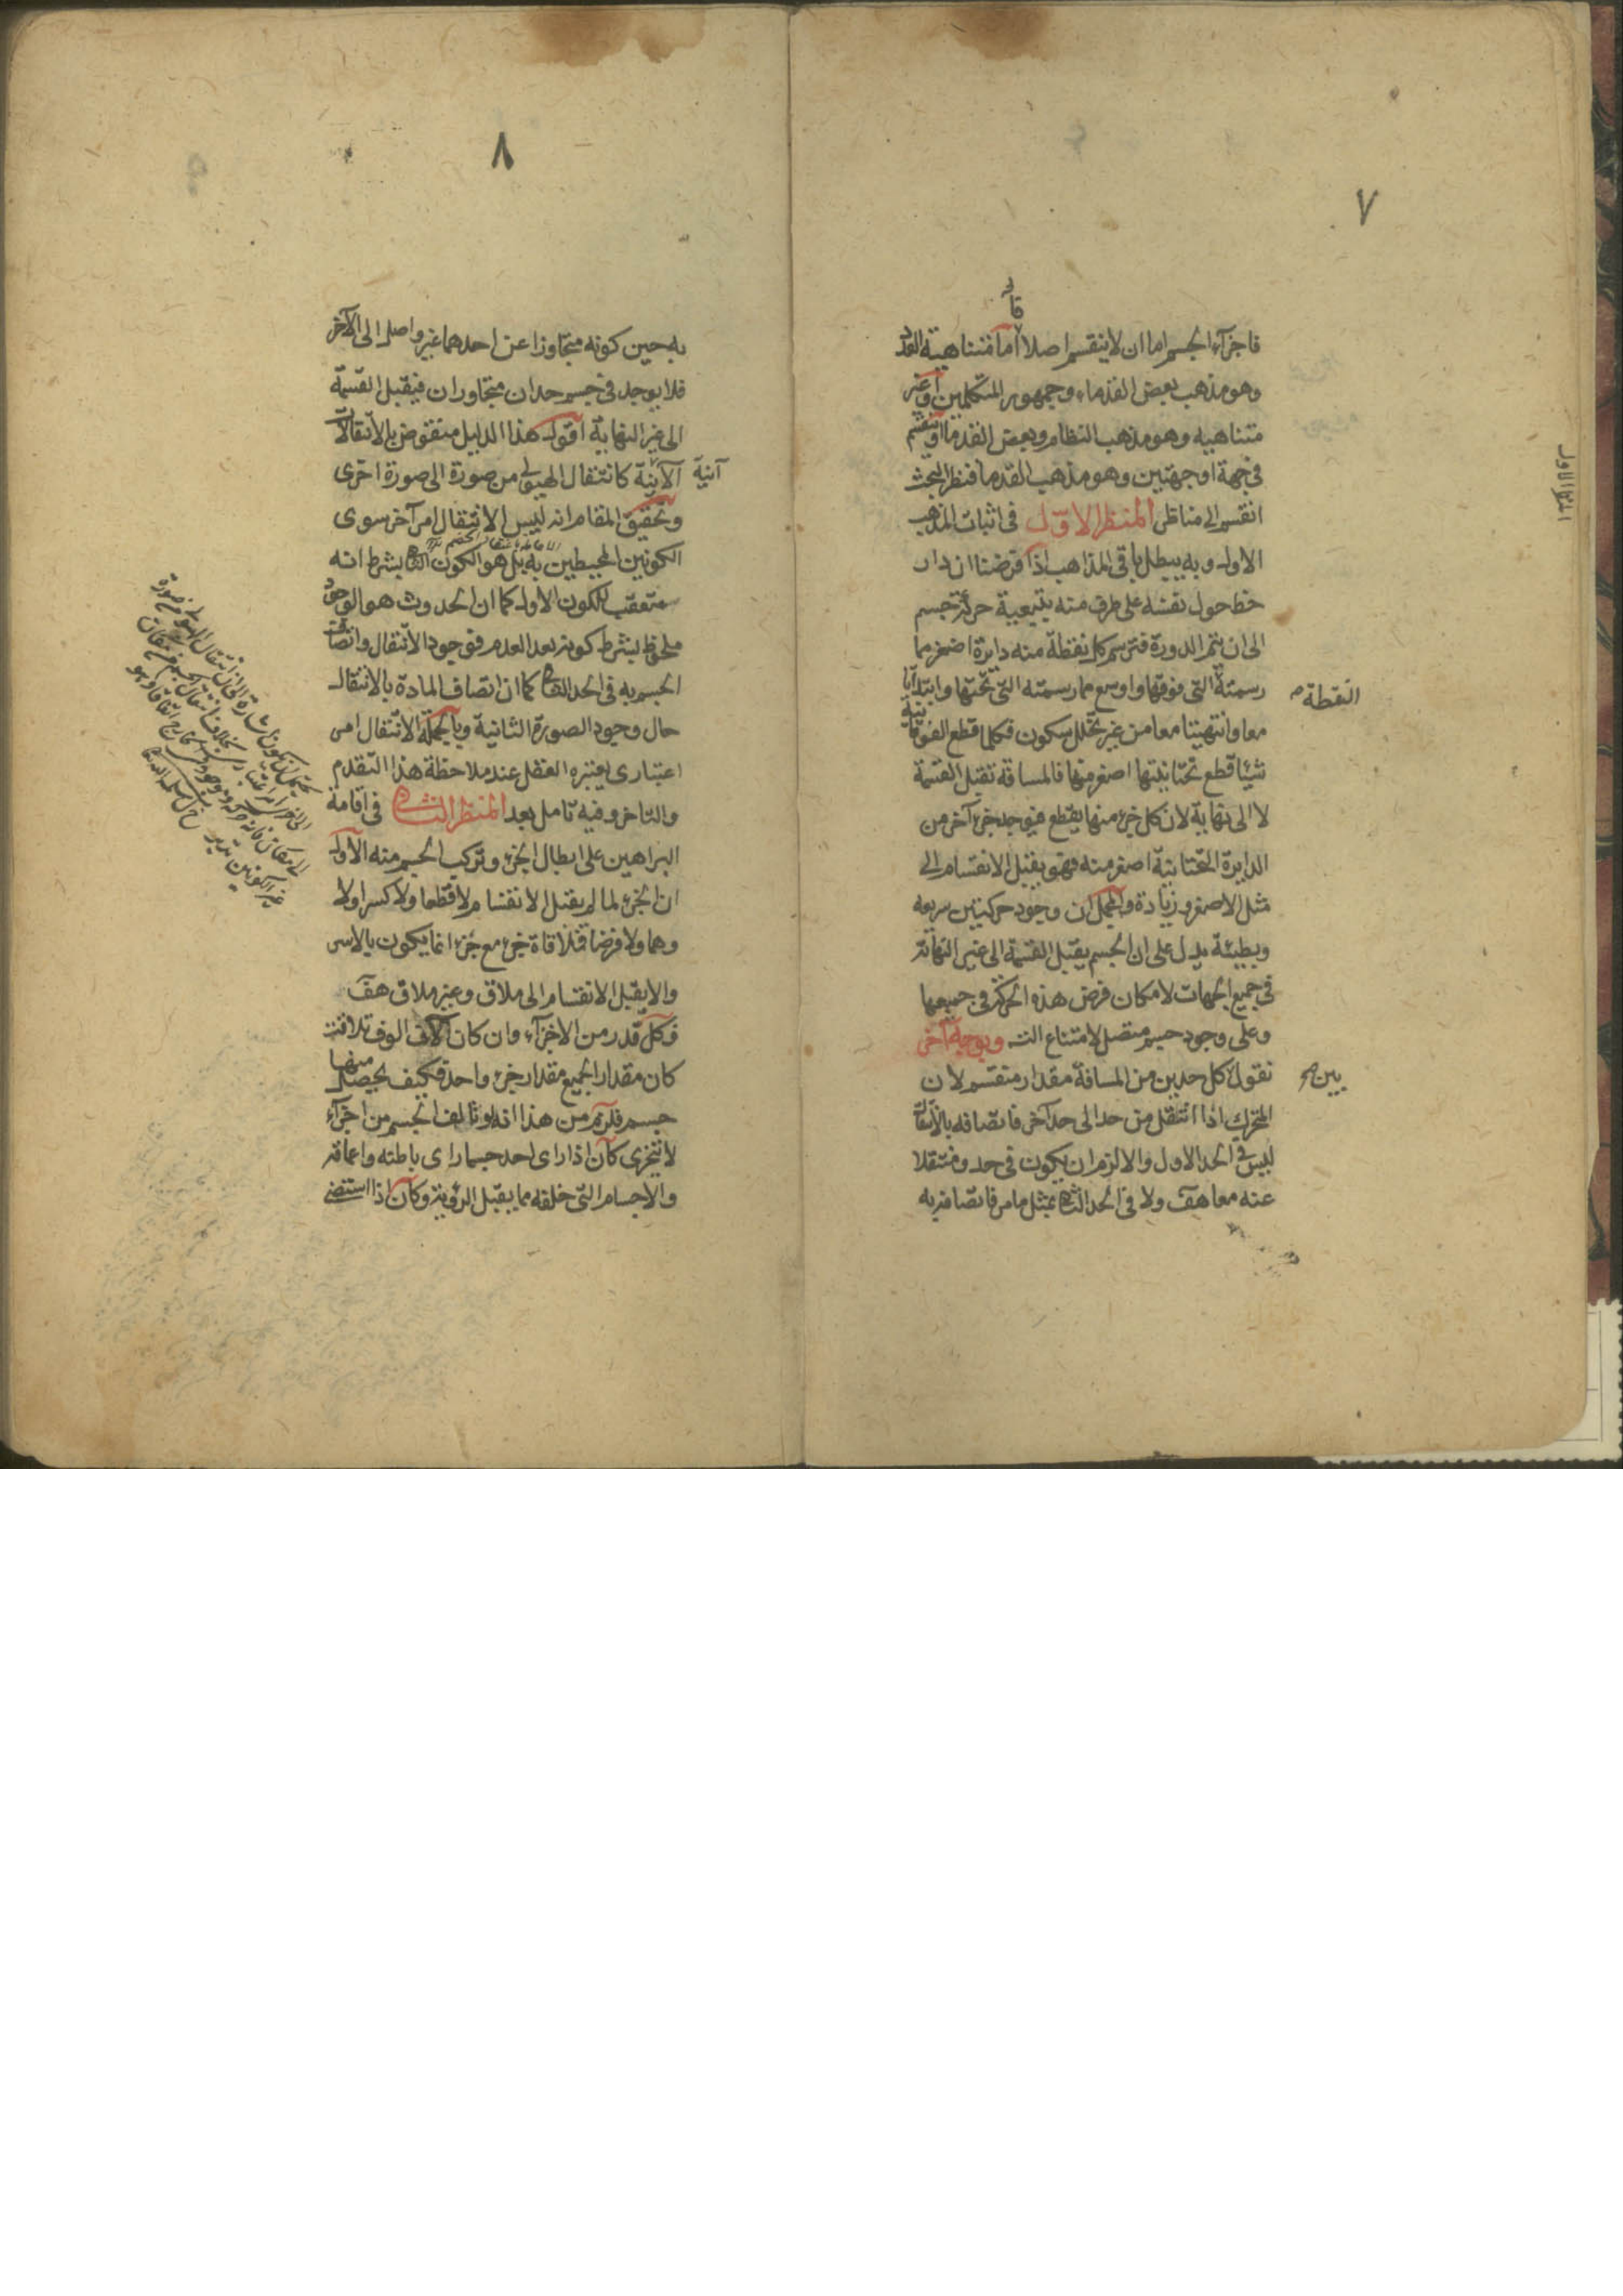 ٧
قا
فاجزآء الجسم اما ان لا ينقسم اصلا اما متناهية العدد
وهو مذهب بعض القدماء وجمهور المتكلمين او غير
متناهيه وهو مذهب النظام وبعض القدما او تنقسم
في جهة او جهتين وهو مذهب القدما فنظر المبحث
انقسم الى مناظر المنظر الاول في اثبات المذهب
الاول وبه يبطل باقي المذاهب اذا فرضنا ان دار
خط حول نفسه على طرف منه بتبعية حركة جسم
الى ان يتم الدورة فترسم كل نقطة منه دايرة اصغر مما
رسمته التي فوقها واوسع مما رسمته التي تحتها وابتدآتا
النقطة صح
معا وانتهيتا معا من غير تخلل سكون فكلما قطع الفوقانية
شيئا قطع تحتانيتها اصغر منها فالمسافة تقبل القسمة
لا الى نهاية لان كل جزء منها يقطع فيوجد جزء آخر من
الدايرة التحتانية اصغر منه فهو يقبل الانقسام الى
مثل الاصغر وزيادة وبالجملة ان وجود حركتين سريعه
وبطيئة يدل على ان الجسم يقبل القسمة الى غير النهاية
في جميع الجهات لامكان فرض هذه الحركة في جميعها
وعلى وجود جسم متصل لامتناع التـ وبوجه آخر
نقول كل حدين من المسافة مقدار منقسم لان
بين صح
المتحرك اذا انتقل من حد الى حد آخر فاتصافه بالانتقال
ليس في الحد الاول والا لزم ان يكون في حد ومنتقلا
عنه معا هف ولا في الحد الثاني بمثل ما مر فاتصافه به
المنظر الاول
٨
به حين كونه متجاوزا عن احدهما غير واصل الى الآخر
فلا يوجد في جسم حدان متجاوران فيقبل القسمة
الى غير النهاية اقول هذا الدليل منقوض بالانتقالات
الآنية كانتقال الهيولى من صورة الى صورة اخرى
آنية
وتحقيق المقام انه ليس الانتقال امر آخر سوى
الكونين المحيطين به بل هو الكون الثاني بشرط انه
متعقب للكون الاول كما ان الحدوث هو الوجود
ملحوظ بشرط كونه بعد العدم فوجود الانتقال واتصاف
الجسم به في الحد الثاني كما ان اتصاف المادة بالانتقال
حال وجود الصورة الثانية وبالجملة الانتقال امر
اعتبارى يعتبره العقل عند ملاحظة هذا التقدم
والتاخر وفيه تامل بعد المنظر الثاني في اقامة
البراهين على ابطال الجزء وتركب الجسم منه الاول
ان الجزء لما لم يقبل الانقسام لا قطعا ولا كسرا ولا
وهما ولا فرضا فملاقاة جزء مع جزء انما يكون بالاسر
والا يقبل الانقسام الى ملاق وغير ملاق هف
فكل قدر من الاجزآء وان كان آلاف الوف تلاقت
كان مقدار الجميع مقدار جزء واحد فكيف يحصل منها
جسم فلزم من هذا انه لو تالف الجسم من اجزآء
لا تتجزى كان اذا راى احد جسما راى باطنه واعماقه
والاجسام التي خلفه مما يقبل الرؤية وكان اذا استضئ